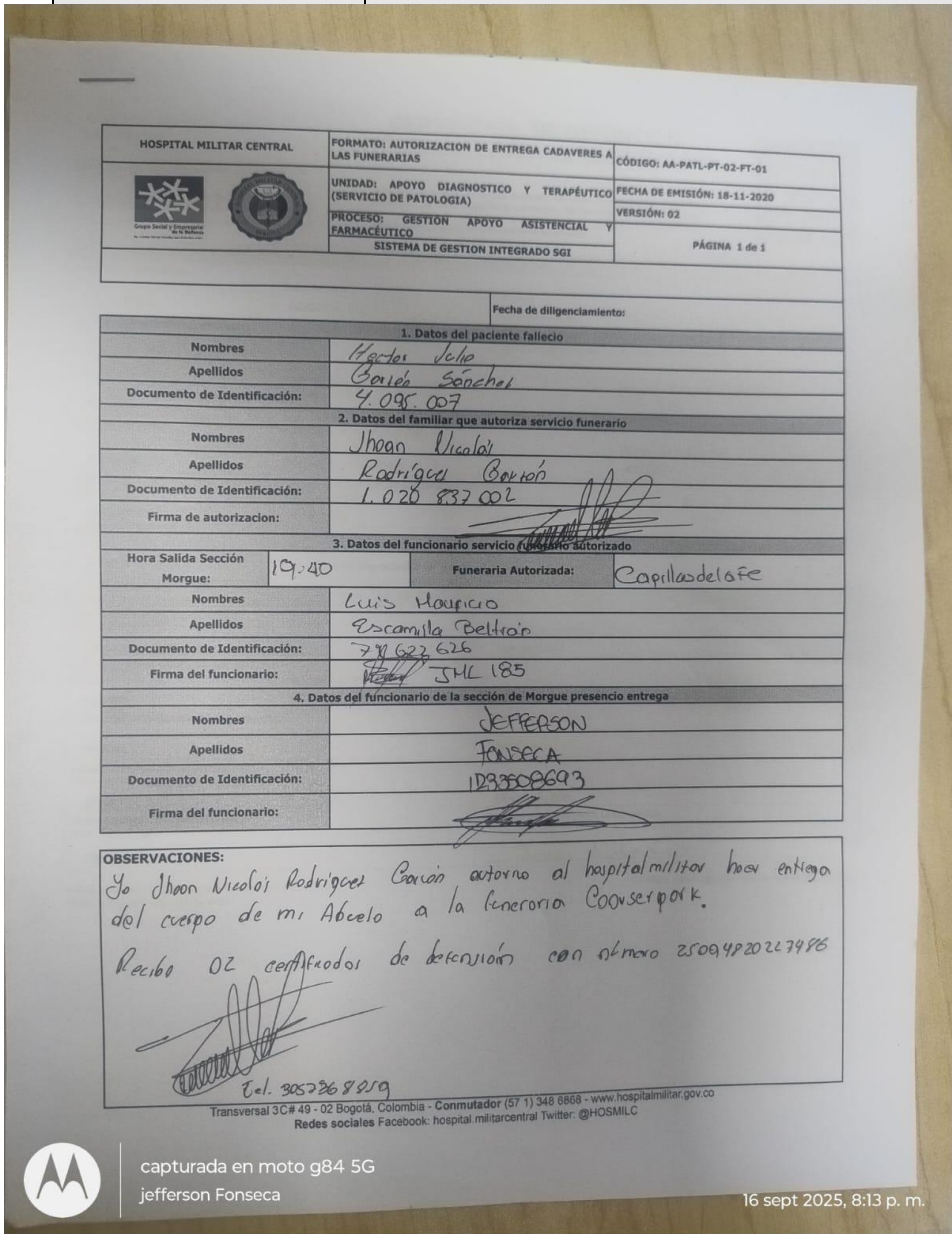 HOSPITAL MILITAR CENTRAL
FORMATO: AUTORIZACION DE ENTREGA CADAVERES A LAS FUNERARIAS
CÓDIGO: AA-PATL-PT-02-FT-01
UNIDAD: APOYO DIAGNOSTICO Y TERAPÉUTICO (SERVICIO DE PATOLOGIA)
FECHA DE EMISIÓN: 18-11-2020
PROCESO: GESTIÓN APOYO ASISTENCIAL Y FARMACÉUTICO
VERSIÓN: 02
SISTEMA DE GESTION INTEGRADO SGI
PÁGINA 1 de 1
Grupo Social y Empresarial
de la Defensa
Fecha de diligenciamiento:
1. Datos del paciente fallecio
Nombres Hector Julio
Apellidos Garzón Sánchez
Documento de Identificación: 4.095.007
2. Datos del familiar que autoriza servicio funerario
Nombres Jhoan Nicolás
Apellidos Rodríguez Garzón
Documento de Identificación: 1.020 837 002
Firma de autorizacion:
3. Datos del funcionario servicio funerario autorizado
Hora Salida Sección Morgue: 19:40 Funeraria Autorizada: Capillas de la Fe
Nombres Luis Mauricio
Apellidos Escamilla Beltrán
Documento de Identificación: 622 626
Firma del funcionario: JML 185
4. Datos del funcionario de la sección de Morgue presencio entrega
Nombres JEFFERSON
Apellidos FONSECA
Documento de Identificación: 1233508693
Firma del funcionario:
OBSERVACIONES:
Yo Jhoan Nicolás Rodríguez Garzón autorizo al hospital militar hacer entrega
del cuerpo de mi Abuelo a la funeraria Coovserpark.
Recibo 02 certificados de defunción con número
Tel. 3057268819
Transversal 3C# 49 - 02 Bogotá, Colombia - Conmutador (57 1) 348 6868 - www.hospitalmilitar.gov.co
Redes sociales Facebook: hospital.militarcentral Twitter: @HOSMILC
capturada en moto g84 5G
jefferson Fonseca
16 sept 2025, 8:13 p. m.